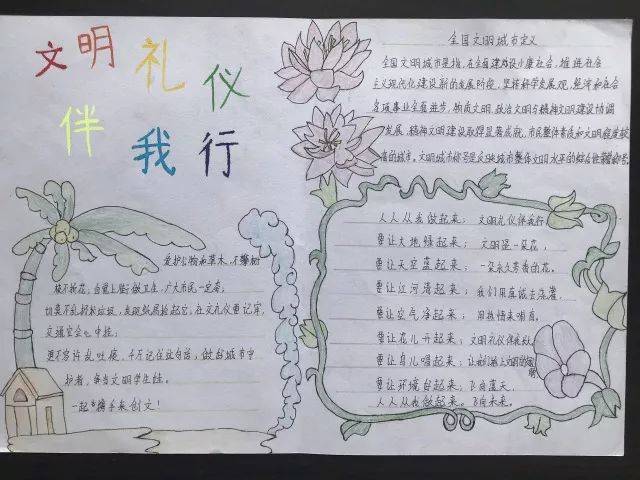 文明礼仪
伴我行
全国文明城市定义
全国文明城市是指,在全面建设小康社会,推进社会
主义现代化建设新的发展阶段,坚持科学发展观,经济和社会
各项事业全面进步,物质文明,政治文明与精神文明建设协调
发展,精神文明建设取得显著成就,市民整体素质和文明程度较
高的城市。文明城市称号是反映城市整体文明水平的综合性荣誉称号。
爱护公物和草木,不攀树
枝不折花,自觉上街做卫生,广大市民一定夸,
切莫不乱扔垃圾,发现纸屑捡起它,社交礼仪要记牢,
交通安全心中挂,
更不容许乱吐痰,千万记住这句话,做好城市守
护者,争当文明学生娃。
一起携手来创文!
人人从我做起来;文明礼仪伴我行
要让大地绿起来;文明是一朵花,
要让天空蓝起来;一朵永久芳香的花。
要让江河清起来;我们用真诚去浇灌,
要让空气净起来;用热情来哺育,
要让花儿开起来;文明礼仪伴我行
要让鸟儿唱起来;让我们踏上文明的
要让环境白起来,飞向蓝天,
人人从我做起来。飞向未来。